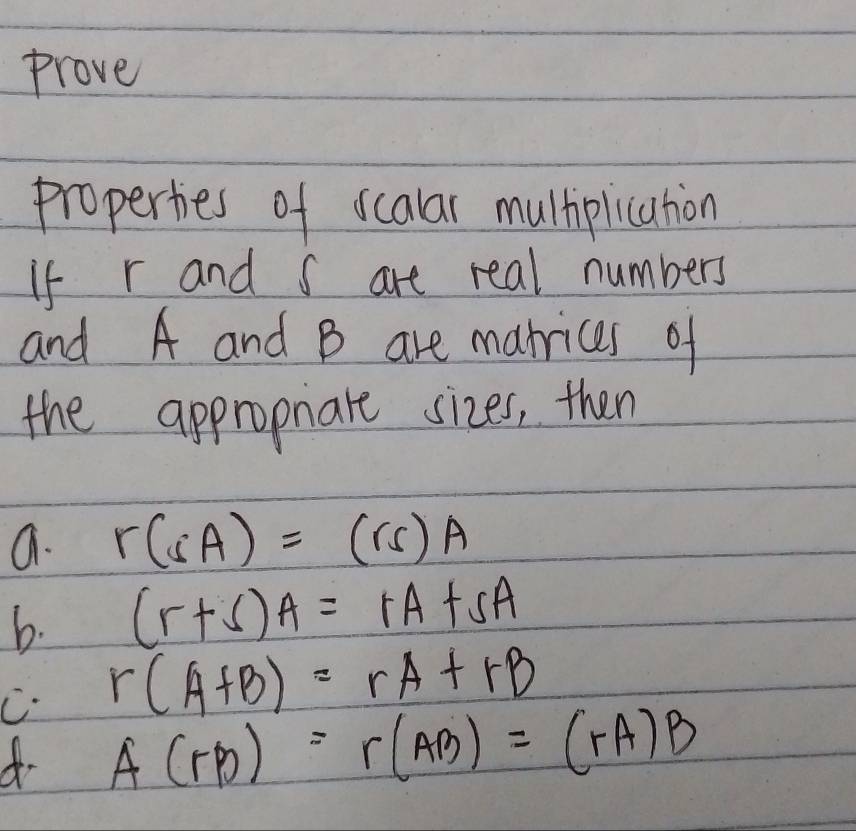 Prove
Properties of scalar multiplication
If r and s are real numbers
and A and B are matrices of
the appropriate sizes, then
a. r(sA) = (rs)A
b. (r+s)A = rA + sA
c. r(A+B) = rA + rB
d. A(rB) = r(AB) = (rA)B